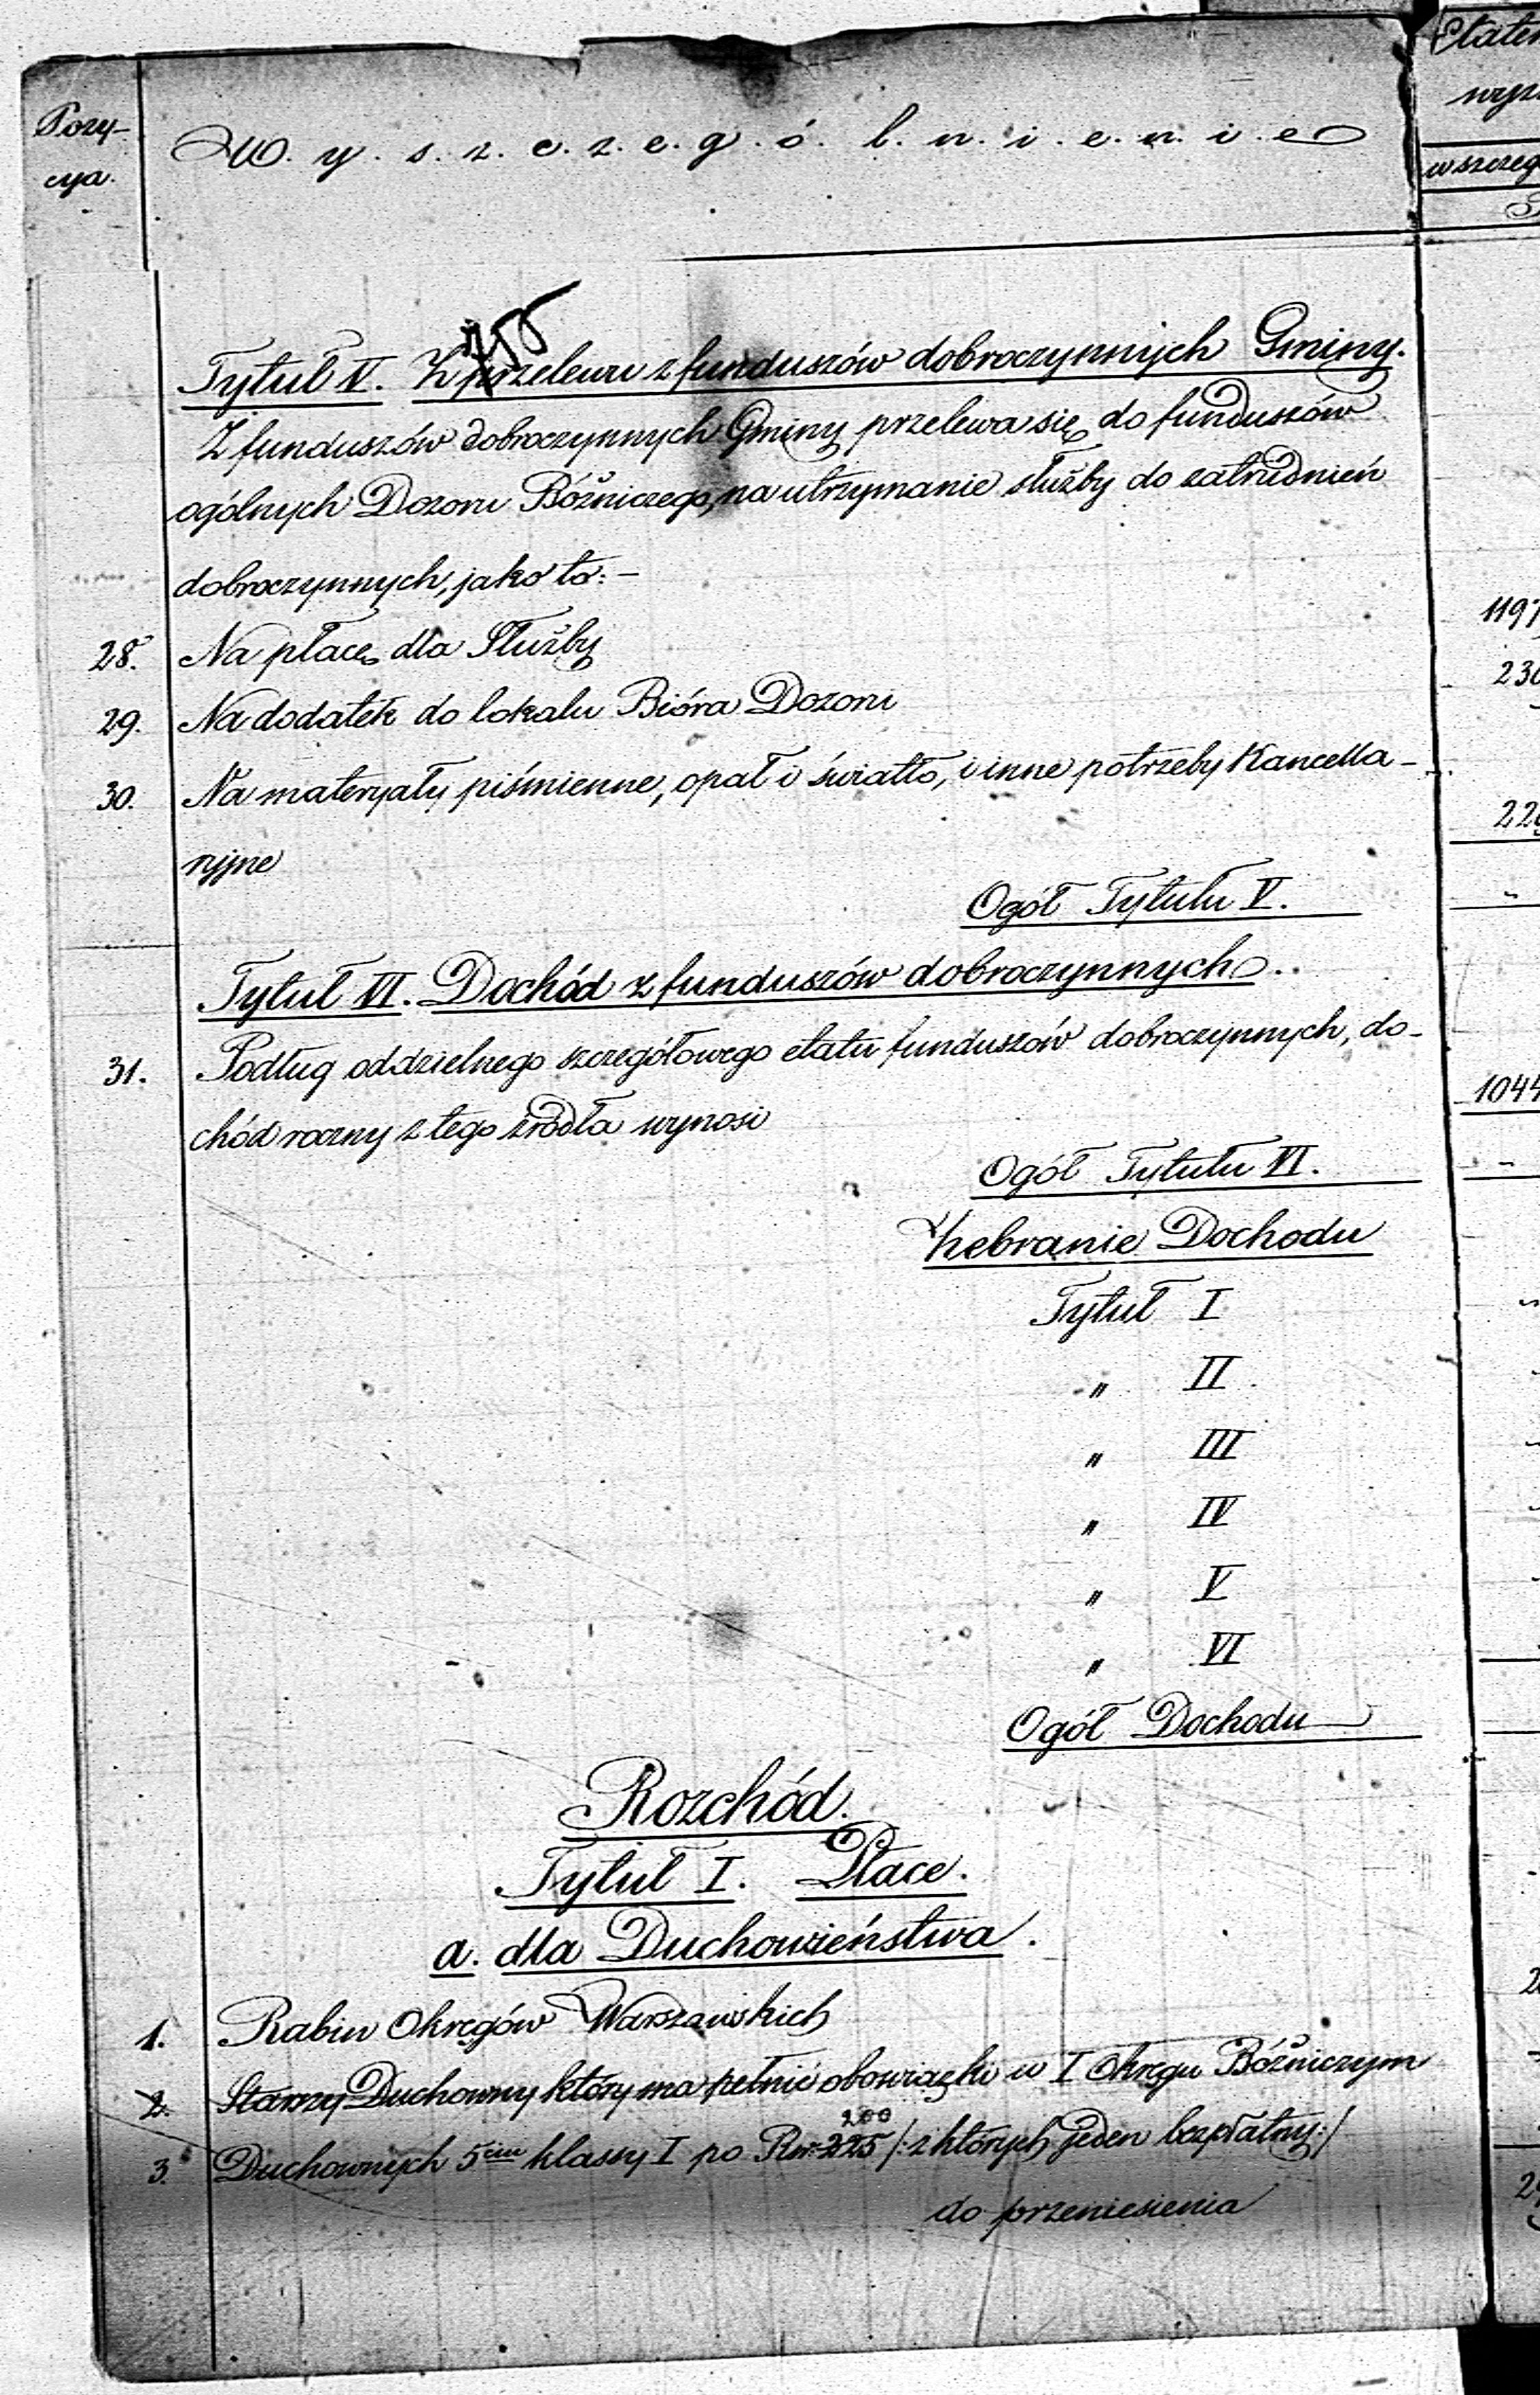 Pozy-
cya.
W. y. s. z. c. z. e. g. ó. l. n. i. e. n. i. e
Etatem
w szczeg
Tytuł V. Z przelewu z funduszów dobroczynnych Gminy.
Z funduszów dobroczynnych Gminy przelewa się do funduszów
ogólnych Dozoru Bóżniczego, na utrzymanie służby do zatrudnień
dobroczynnych, jako to: –
28. Na płacę dla Służby 1197
29. Na dodatek do lokalu Bióra Dozoru 230
30. Na materyały piśmienne, opał i światło, i inne potrzeby Kancella-
ryjne 22
Ogół Tytułu V.
Tytuł VI. Dochód z funduszów dobroczynnych.
31. Podług oddzielnego szczegółowego etatu funduszów dobroczynnych, do-
chód roczny z tego źródła wynosi 1044
Ogół Tytułu VI.
Zebranie Dochodu
Tytuł I
" II
" III
" IV
" V
" VI
Ogół Dochodu
Rozchód.
Tytuł I. Płace.
a. dla Duchowieństwa.
1. Rabin Okręgów Warszawskich
2. Starszy Duchowny który ma pełnić obowiązki w I Okręgu Bóżniczym
200
3. Duchownych 5ciu klassy I po Rsr. 225 /: z których jeden bezpłatny :/
do przeniesienia